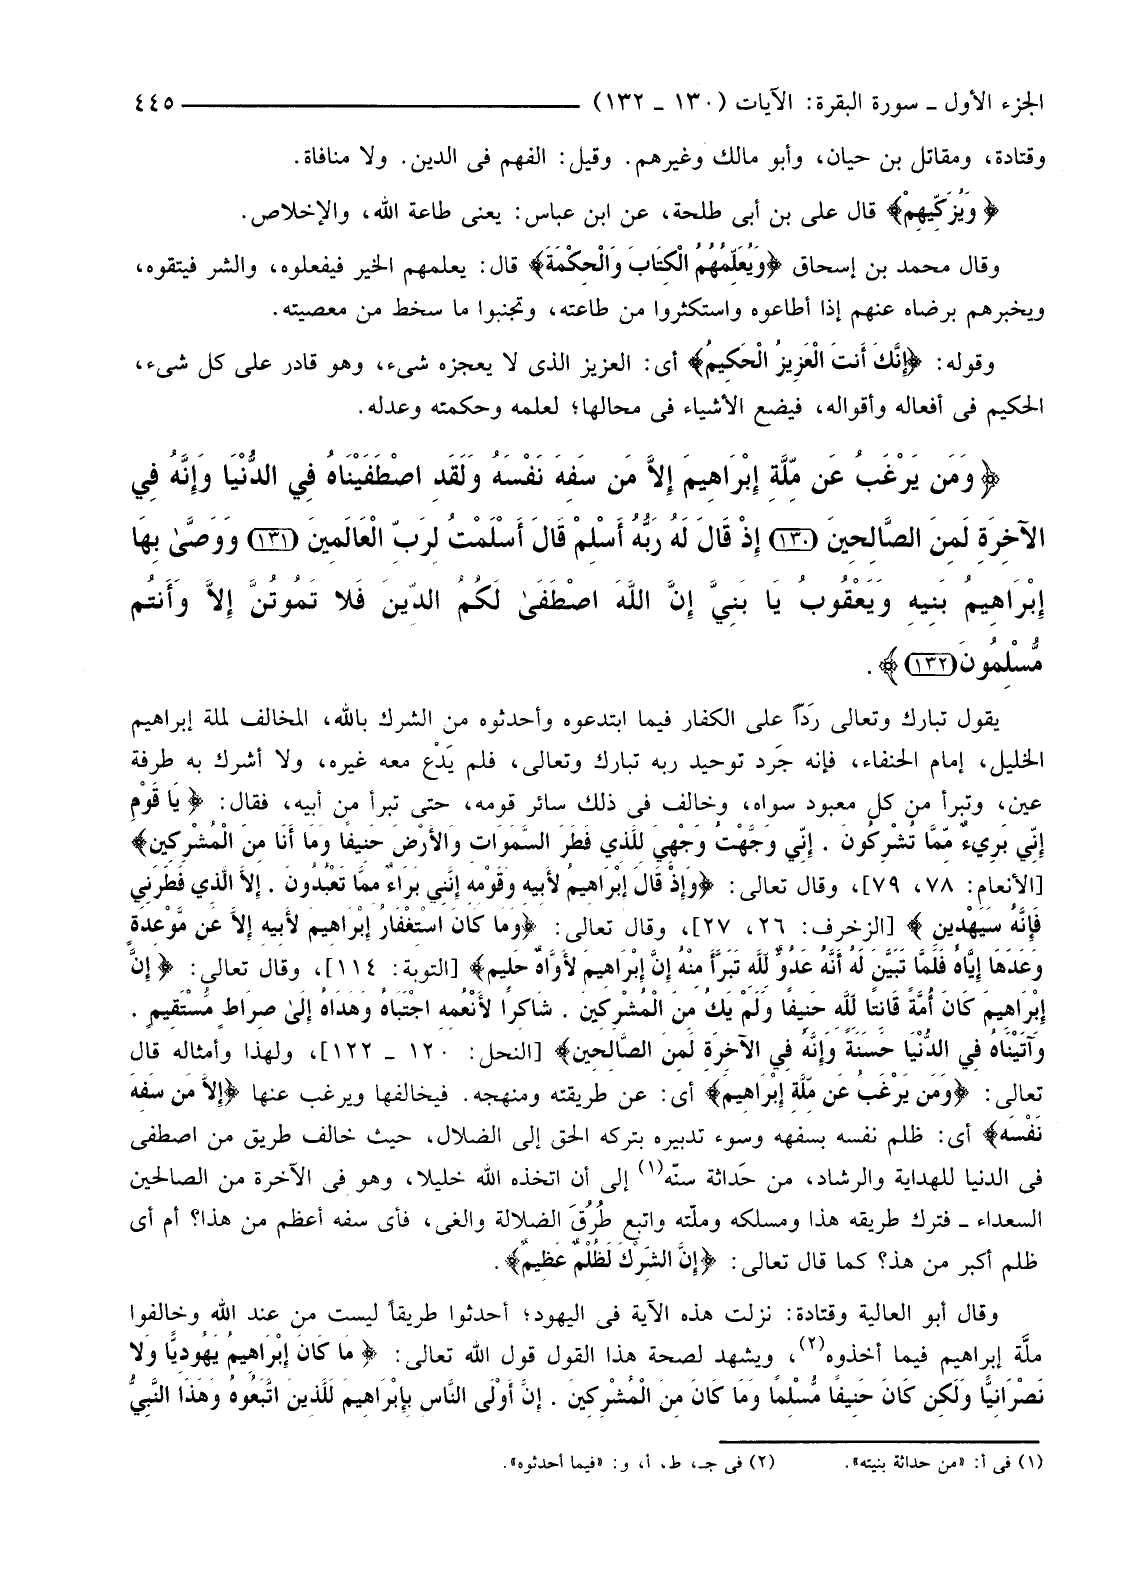 الجزء الأول ـ سورة البقرة: الآيات (١٣٠ ـ ١٣٢) ٤٤٥
وقتادة، ومقاتل بن حيان، وأبو مالك وغيرهم. وقيل: الفهم فى الدين. ولا منافاة.
﴿ وَيُزَكِّيهِمْ﴾ قال على بن أبى طلحة، عن ابن عباس: يعنى طاعة الله، والإخلاص.
وقال محمد بن إسحاق ﴿وَيُعَلِّمُهُمُ الْكِتَابَ وَالْحِكْمَةَ﴾ قال: يعلمهم الخير فيفعلوه، والشر فيتقوه،
ويخبرهم برضاه عنهم إذا أطاعوه واستكثروا من طاعته، وتجنبوا ما سخط من معصيته.
وقوله: ﴿إِنَّكَ أَنتَ الْعَزِيزُ الْحَكِيمُ﴾ أى: العزيز الذى لا يعجزه شىء، وهو قادر على كل شىء،
الحكيم فى أفعاله وأقواله، فيضع الأشياء فى محالها؛ لعلمه وحكمته وعدله.
﴿ وَمَن يَرْغَبُ عَن مِّلَّةِ إِبْرَاهِيمَ إِلاَّ مَن سَفِهَ نَفْسَهُ وَلَقَدِ اصْطَفَيْنَاهُ فِي الدُّنْيَا وَإِنَّهُ فِي
الآخِرَةِ لَمِنَ الصَّالِحِينَ (١٣٠) إِذْ قَالَ لَهُ رَبُّهُ أَسْلِمْ قَالَ أَسْلَمْتُ لِرَبِّ الْعَالَمِينَ (١٣١) وَوَصَّىٰ بِهَا
إِبْرَاهِيمُ بَنِيهِ وَيَعْقُوبُ يَا بَنِيَّ إِنَّ اللَّهَ اصْطَفَىٰ لَكُمُ الدِّينَ فَلا تَمُوتُنَّ إِلاَّ وَأَنتُم
مُّسْلِمُونَ (١٣٢) ﴾ .
يقول تبارك وتعالى رَدّاً على الكفار فيما ابتدعوه وأحدثوه من الشرك بالله، المخالف لملة إبراهيم
الخليل، إمام الحنفاء، فإنه جَرد توحيد ربه تبارك وتعالى، فلم يَدْع معه غيره، ولا أشرك به طرفة
عين، وتبرأ من كل معبود سواه، وخالف فى ذلك سائر قومه، حتى تبرأ من أبيه، فقال: ﴿ يَا قَوْمِ
إِنِّي بَرِيءٌ مِّمَّا تُشْرِكُونَ . إِنِّي وَجَّهْتُ وَجْهِيَ لِلَّذِي فَطَرَ السَّمَوَاتِ وَالأَرْضَ حَنِيفًا وَمَا أَنَا مِنَ الْمُشْرِكِينَ﴾
[الأنعام: ٧٨، ٧٩]، وقال تعالى: ﴿وَإِذْ قَالَ إِبْرَاهِيمُ لأَبِيهِ وَقَوْمِهِ إِنَّنِي بَرَاءٌ مِّمَّا تَعْبُدُونَ . إِلاَّ الَّذِي فَطَرَنِي
فَإِنَّهُ سَيَهْدِينِ ﴾ [الزخرف: ٢٦، ٢٧]، وقال تعالى: ﴿وَمَا كَانَ اسْتِغْفَارُ إِبْرَاهِيمَ لأَبِيهِ إِلاَّ عَن مَّوْعِدَةٍ
وَعَدَهَا إِيَّاهُ فَلَمَّا تَبَيَّنَ لَهُ أَنَّهُ عَدُوٌّ لِلَّهِ تَبَرَّأَ مِنْهُ إِنَّ إِبْرَاهِيمَ لأَوَّاهٌ حَلِيمٌ﴾ [التوبة: ١١٤]، وقال تعالى: ﴿ إِنَّ
إِبْرَاهِيمَ كَانَ أُمَّةً قَانِتًا لِلَّهِ حَنِيفًا وَلَمْ يَكُ مِنَ الْمُشْرِكِينَ . شَاكِرًا لأَنْعُمِهِ اجْتَبَاهُ وَهَدَاهُ إِلَىٰ صِرَاطٍ مُّسْتَقِيمٍ .
وَآتَيْنَاهُ فِي الدُّنْيَا حَسَنَةً وَإِنَّهُ فِي الآخِرَةِ لَمِنَ الصَّالِحِينَ﴾ [النحل: ١٢٠ ـ ١٢٢]، ولهذا وأمثاله قال
تعالى: ﴿وَمَن يَرْغَبُ عَن مِّلَّةِ إِبْرَاهِيمَ﴾ أى: عن طريقته ومنهجه. فيخالفها ويرغب عنها ﴿إِلاَّ مَن سَفِهَ
نَفْسَهُ﴾ أى: ظلم نفسه بسفهه وسوء تدبيره بتركه الحق إلى الضلال، حيث خالف طريق من اصطفى
فى الدنيا للهداية والرشاد، من حَداثة سنّه(١) إلى أن اتخذه الله خليلا، وهو فى الآخرة من الصالحين
السعداء ـ فترك طريقه هذا ومسلكه وملّته واتبع طُرُقَ الضلالة والغى، فأى سفه أعظم من هذا؟ أم أى
ظلم أكبر من هذ؟ كما قال تعالى: ﴿إِنَّ الشِّرْكَ لَظُلْمٌ عَظِيمٌ﴾.
وقال أبو العالية وقتادة: نزلت هذه الآية فى اليهود؛ أحدثوا طريقاً ليست من عند الله وخالفوا
ملَّة إبراهيم فيما أخذوه(٢)، ويشهد لصحة هذا القول قول الله تعالى: ﴿ مَا كَانَ إِبْرَاهِيمُ يَهُودِيًّا وَلا
نَصْرَانِيًّا وَلَكِن كَانَ حَنِيفًا مُّسْلِمًا وَمَا كَانَ مِنَ الْمُشْرِكِينَ . إِنَّ أَوْلَى النَّاسِ بِإِبْرَاهِيمَ لَلَّذِينَ اتَّبَعُوهُ وَهَذَا النَّبِيُّ
(١) فى أ: «من حداثة بنيته». (٢) فى جـ، ط، أ، و: «فيما أحدثوه».